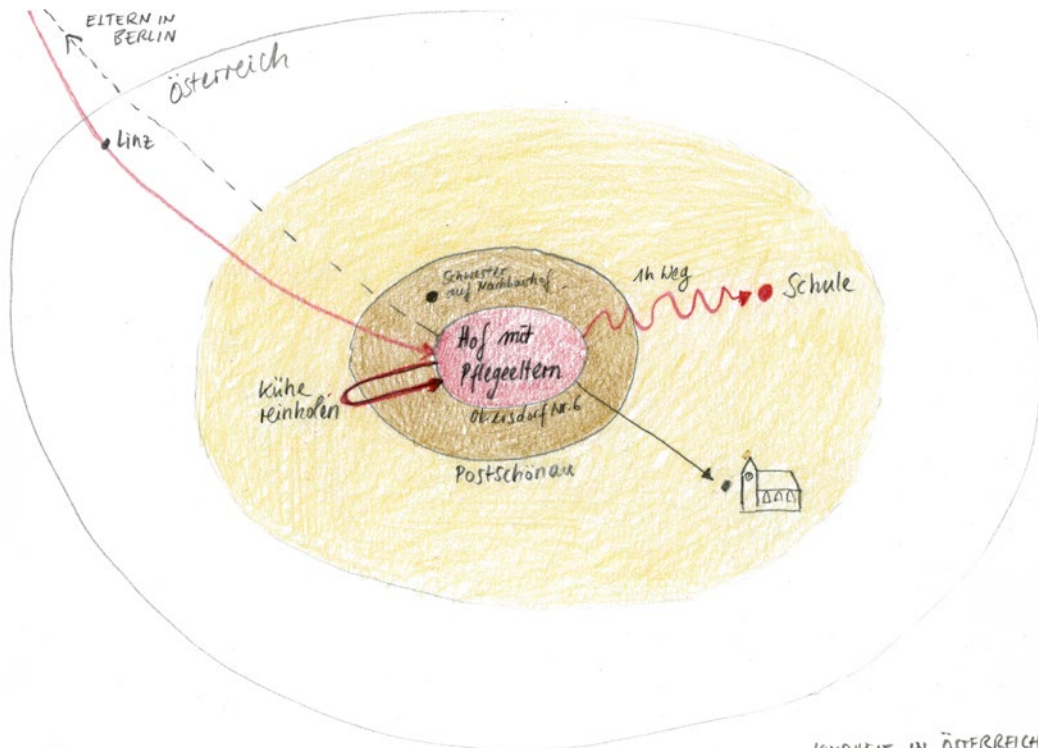 ELTERN IN
BERLIN
Österreich
Linz
Schwester
auf Nachbarhof
1h Weg
Schule
Hof mit
Pflegeeltern
Kühe
reinholen
Nr. 6
Postschönau
IN ÖSTERREICH